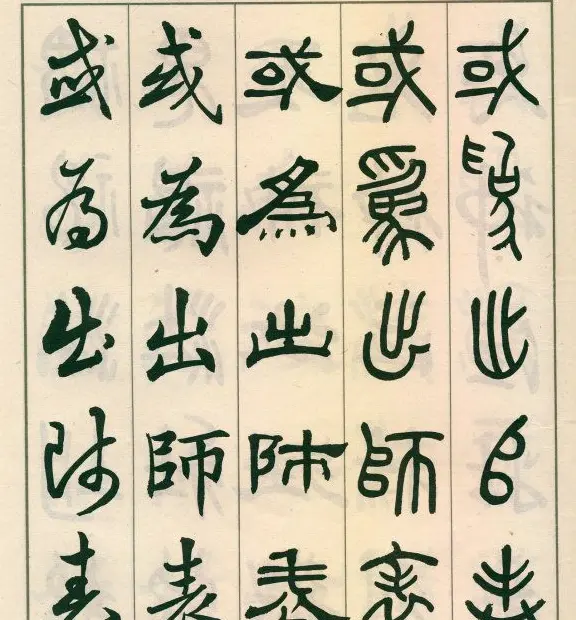 或爲出𠂤表
或爲出師表
或為出師表
或為出師表
或為出師表